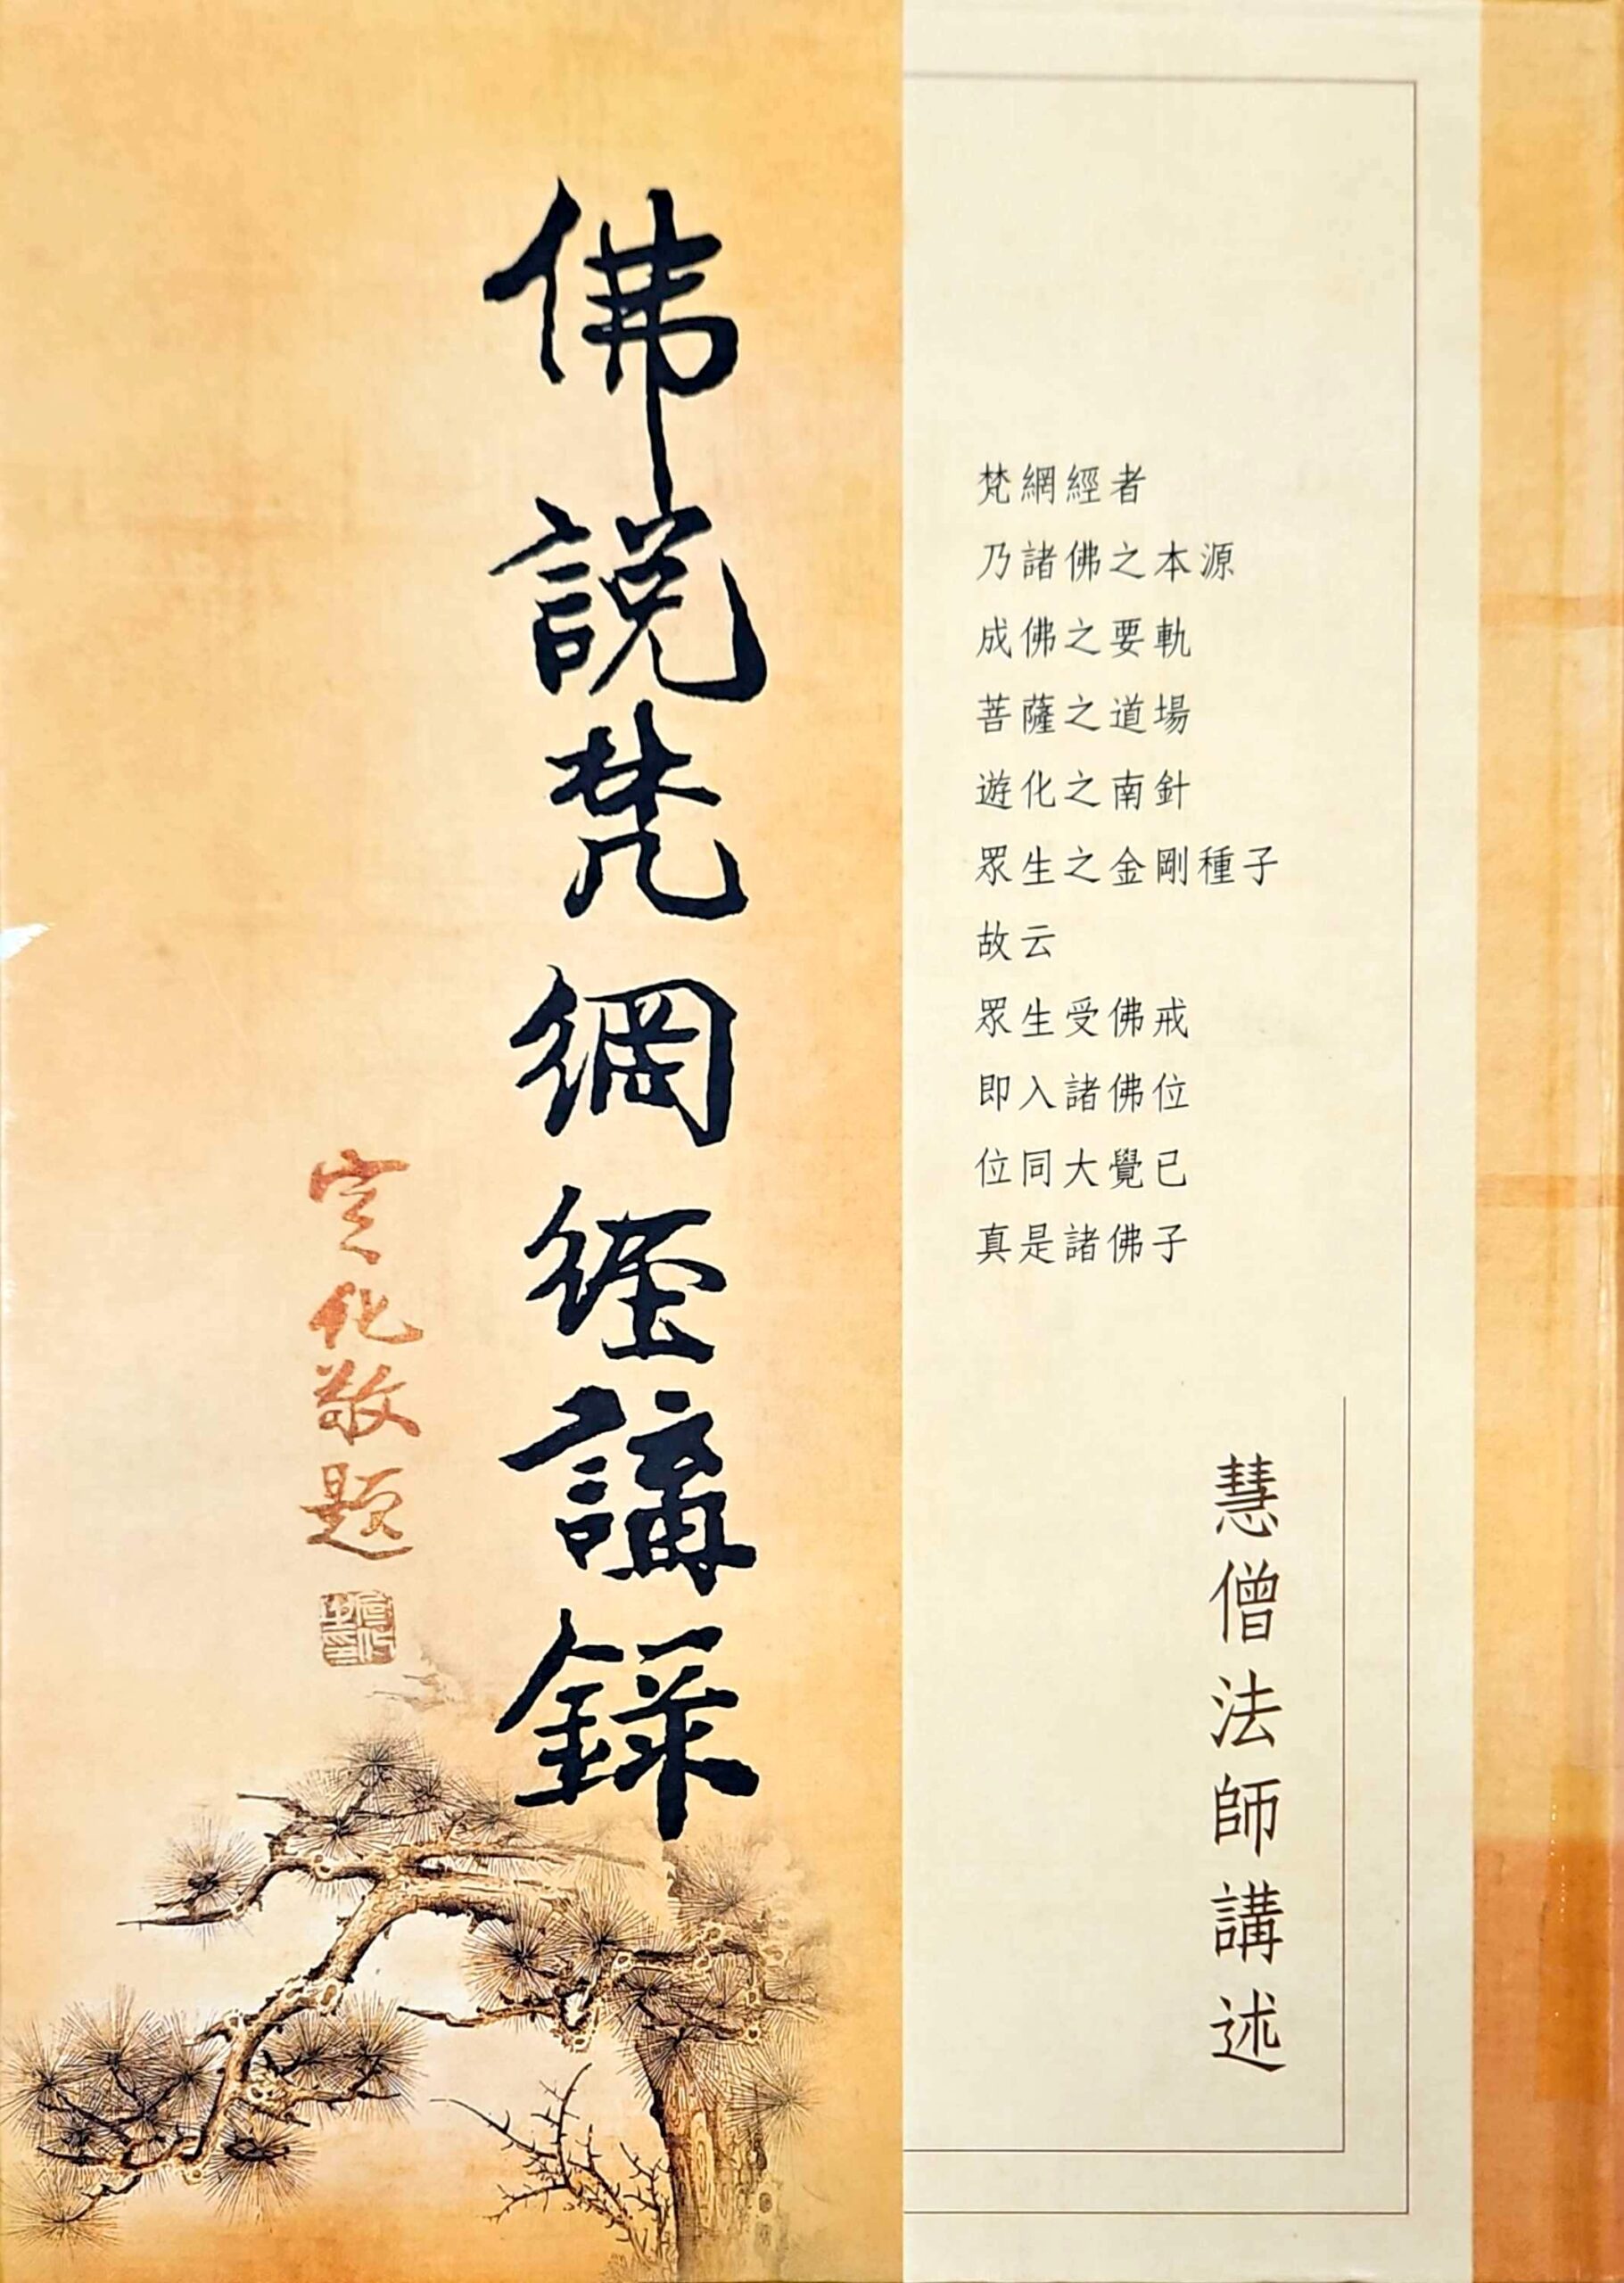 佛說梵網經講錄
宣化敬題
梵網經者
乃諸佛之本源
成佛之要軌
菩薩之道場
遊化之南針
眾生之金剛種子
故云
眾生受佛戒
即入諸佛位
位同大覺已
真是諸佛子
慧僧法師講述